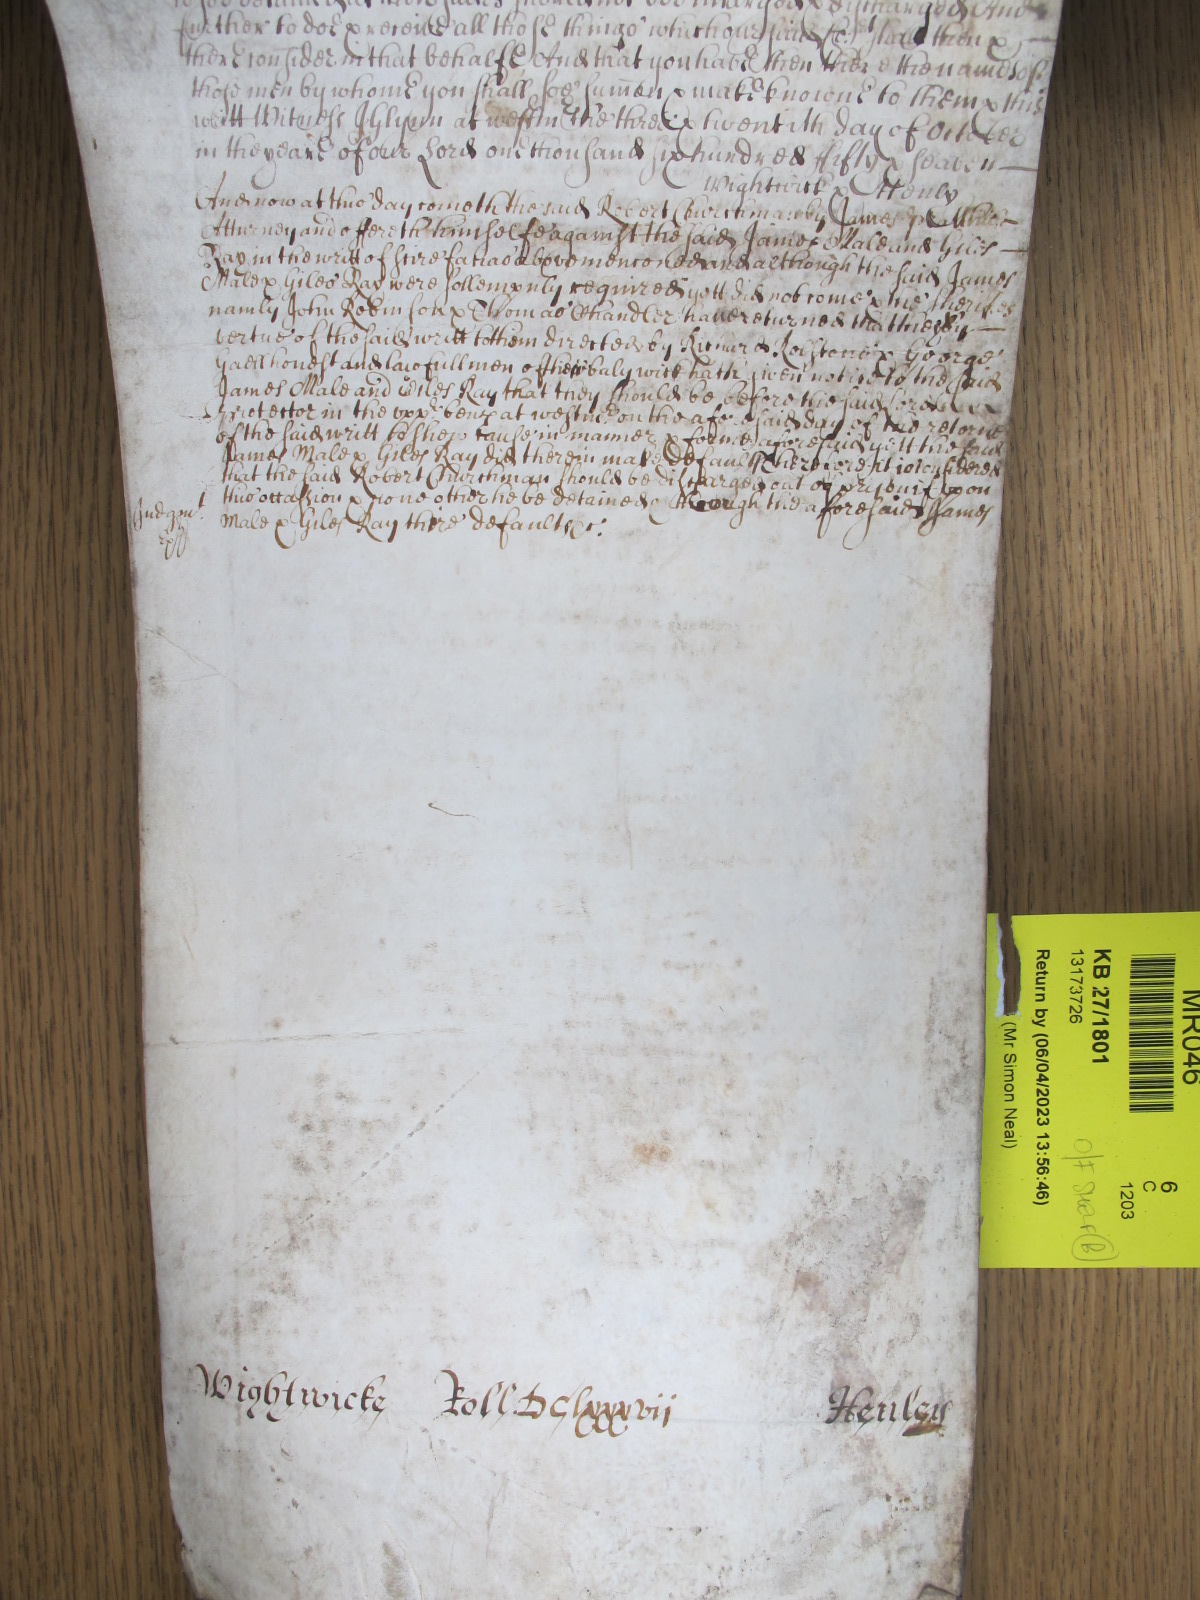 further to doe & receive all those things which our said Co't shall then &
there consider in that behalfe And that you have then there the names of
those men by whome you shall soe sum̄on & make knowne to them & this
writt Witnes J Glynn at westm̄ the three & twentith day of October
in the yeare of our Lord one thousand six hundred fifty & seaven
Wightwick & Henly
And now at this day cometh the said Robert Churchman by James
Attorney and offereth himselfe against the said James Male and Giles
Ray in the writt of scire facias above menc̄oned and although the said James
Male & Giles Ray were sollempnly required yett did not come & the sheriffes
namly John Robinson & Thomas Chandler have returned that they by
vertue of the said writt to them directed by Richard Rolstone & George
Gaell honest and lawfull men of their balywick hath given notice to the said
James Male and Giles Ray that they should be before the said Lord
Protector in the upp̄ bench at westm̄ on the aforesaid day of the retorne
of the said writt to shew cause in manner & forme aforesaid yett the said
James Male & Giles Ray did therein make default Therefore it is considered
that the said Robert Churchman should be discharged out of prison if upon
this occasion & none other he be detained through the aforesaid James
Male & Giles Ray there default &c:
Judgmt
Wightwicke Roll DClxxxvii Henley
MR046
6
C
1203
KB 27/1801
13173726
Return by (06/04/2023 13:56:46)
(Mr Simon Neal)